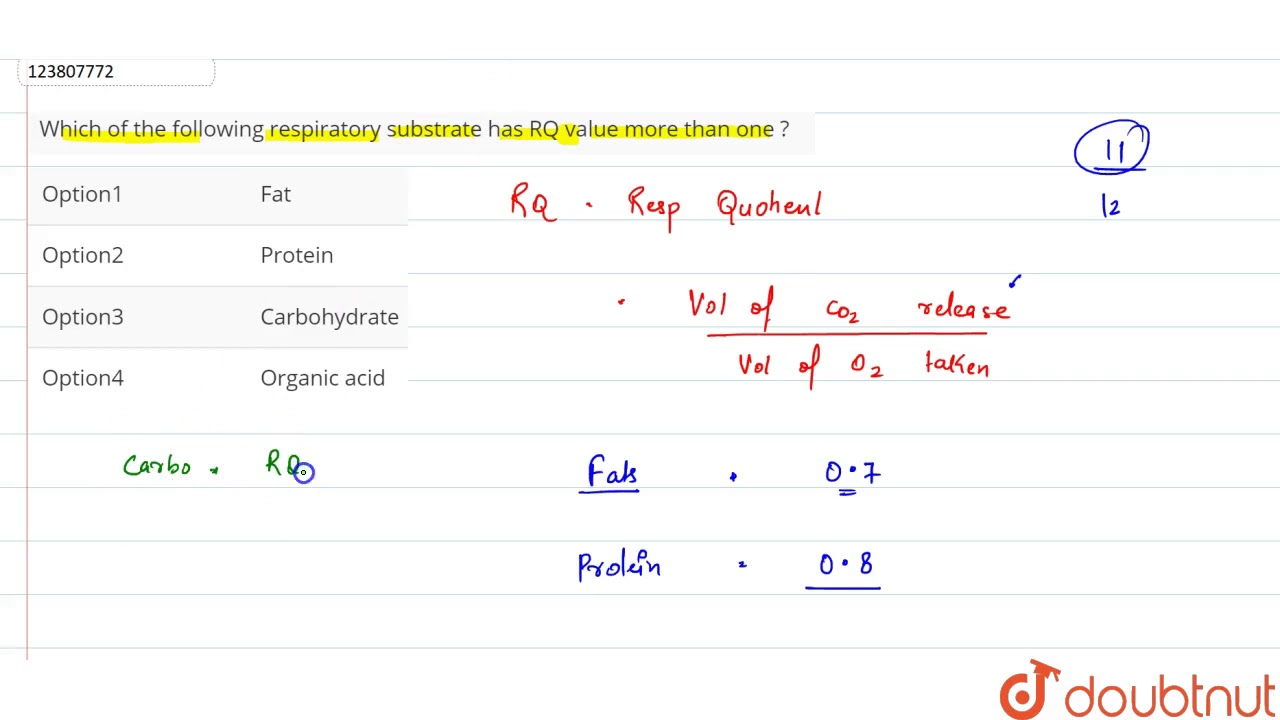 123807772
Which of the following respiratory substrate has RQ value more than one ?
11
12
Option1 Fat
RQ . Resp Quohenl
Option2 Protein
Option3 Carbohydrate
. Vol of CO2 release
Vol of O2 taken
Option4 Organic acid
Carbo . RQ
Fats . 0.7
Protein = 0.8
doubtnut